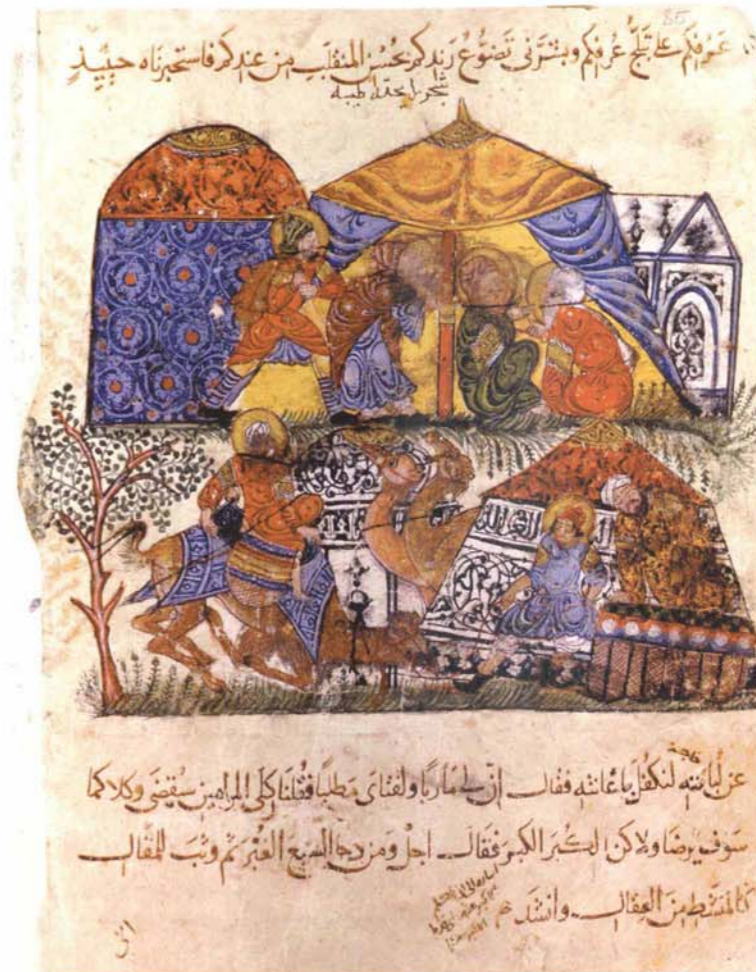 85
عَرفكم على تبلج عُرفكم وبشرني تضوع رندكم بحسن المنقلب من عندكم فاستخبرناه حينئذ
شجر رايحته طيبه
حاجة
عن لبانته لنكفل باعانته فقال ان لي ماربا ولفتاي مطلبا فقلنا كلى المرامين سيقضى وكلاكما
سوف يرضا ولاكن الكبر الكبر فقال اجل ومن دحا السبع الغبر ثم وثب للمقال
كالمنشط من العقال وانشد